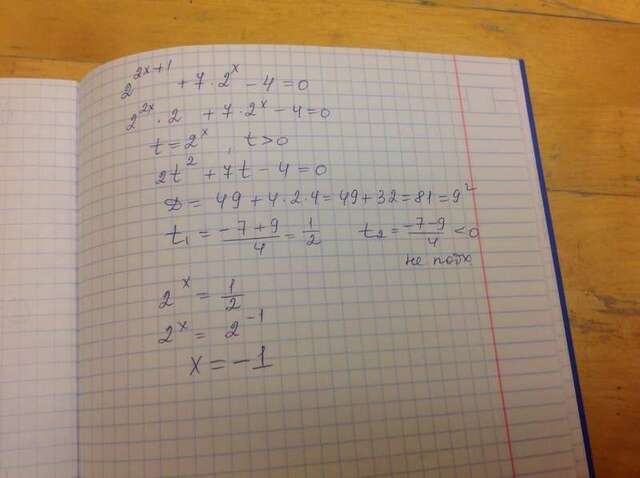 2^{2x+1} + 7 · 2^x − 4 = 0
2^{2x} · 2 + 7 · 2^x − 4 = 0
t = 2^x, t > 0
2t^2 + 7t − 4 = 0
D = 49 + 4 · 2 · 4 = 49 + 32 = 81 = 9^2
t_1 = \frac{−7+9}{4} = \frac{1}{2} t_2 = \frac{−7−9}{4} < 0
не подх
2^x = \frac{1}{2}
2^x = 2^{−1}
x = −1